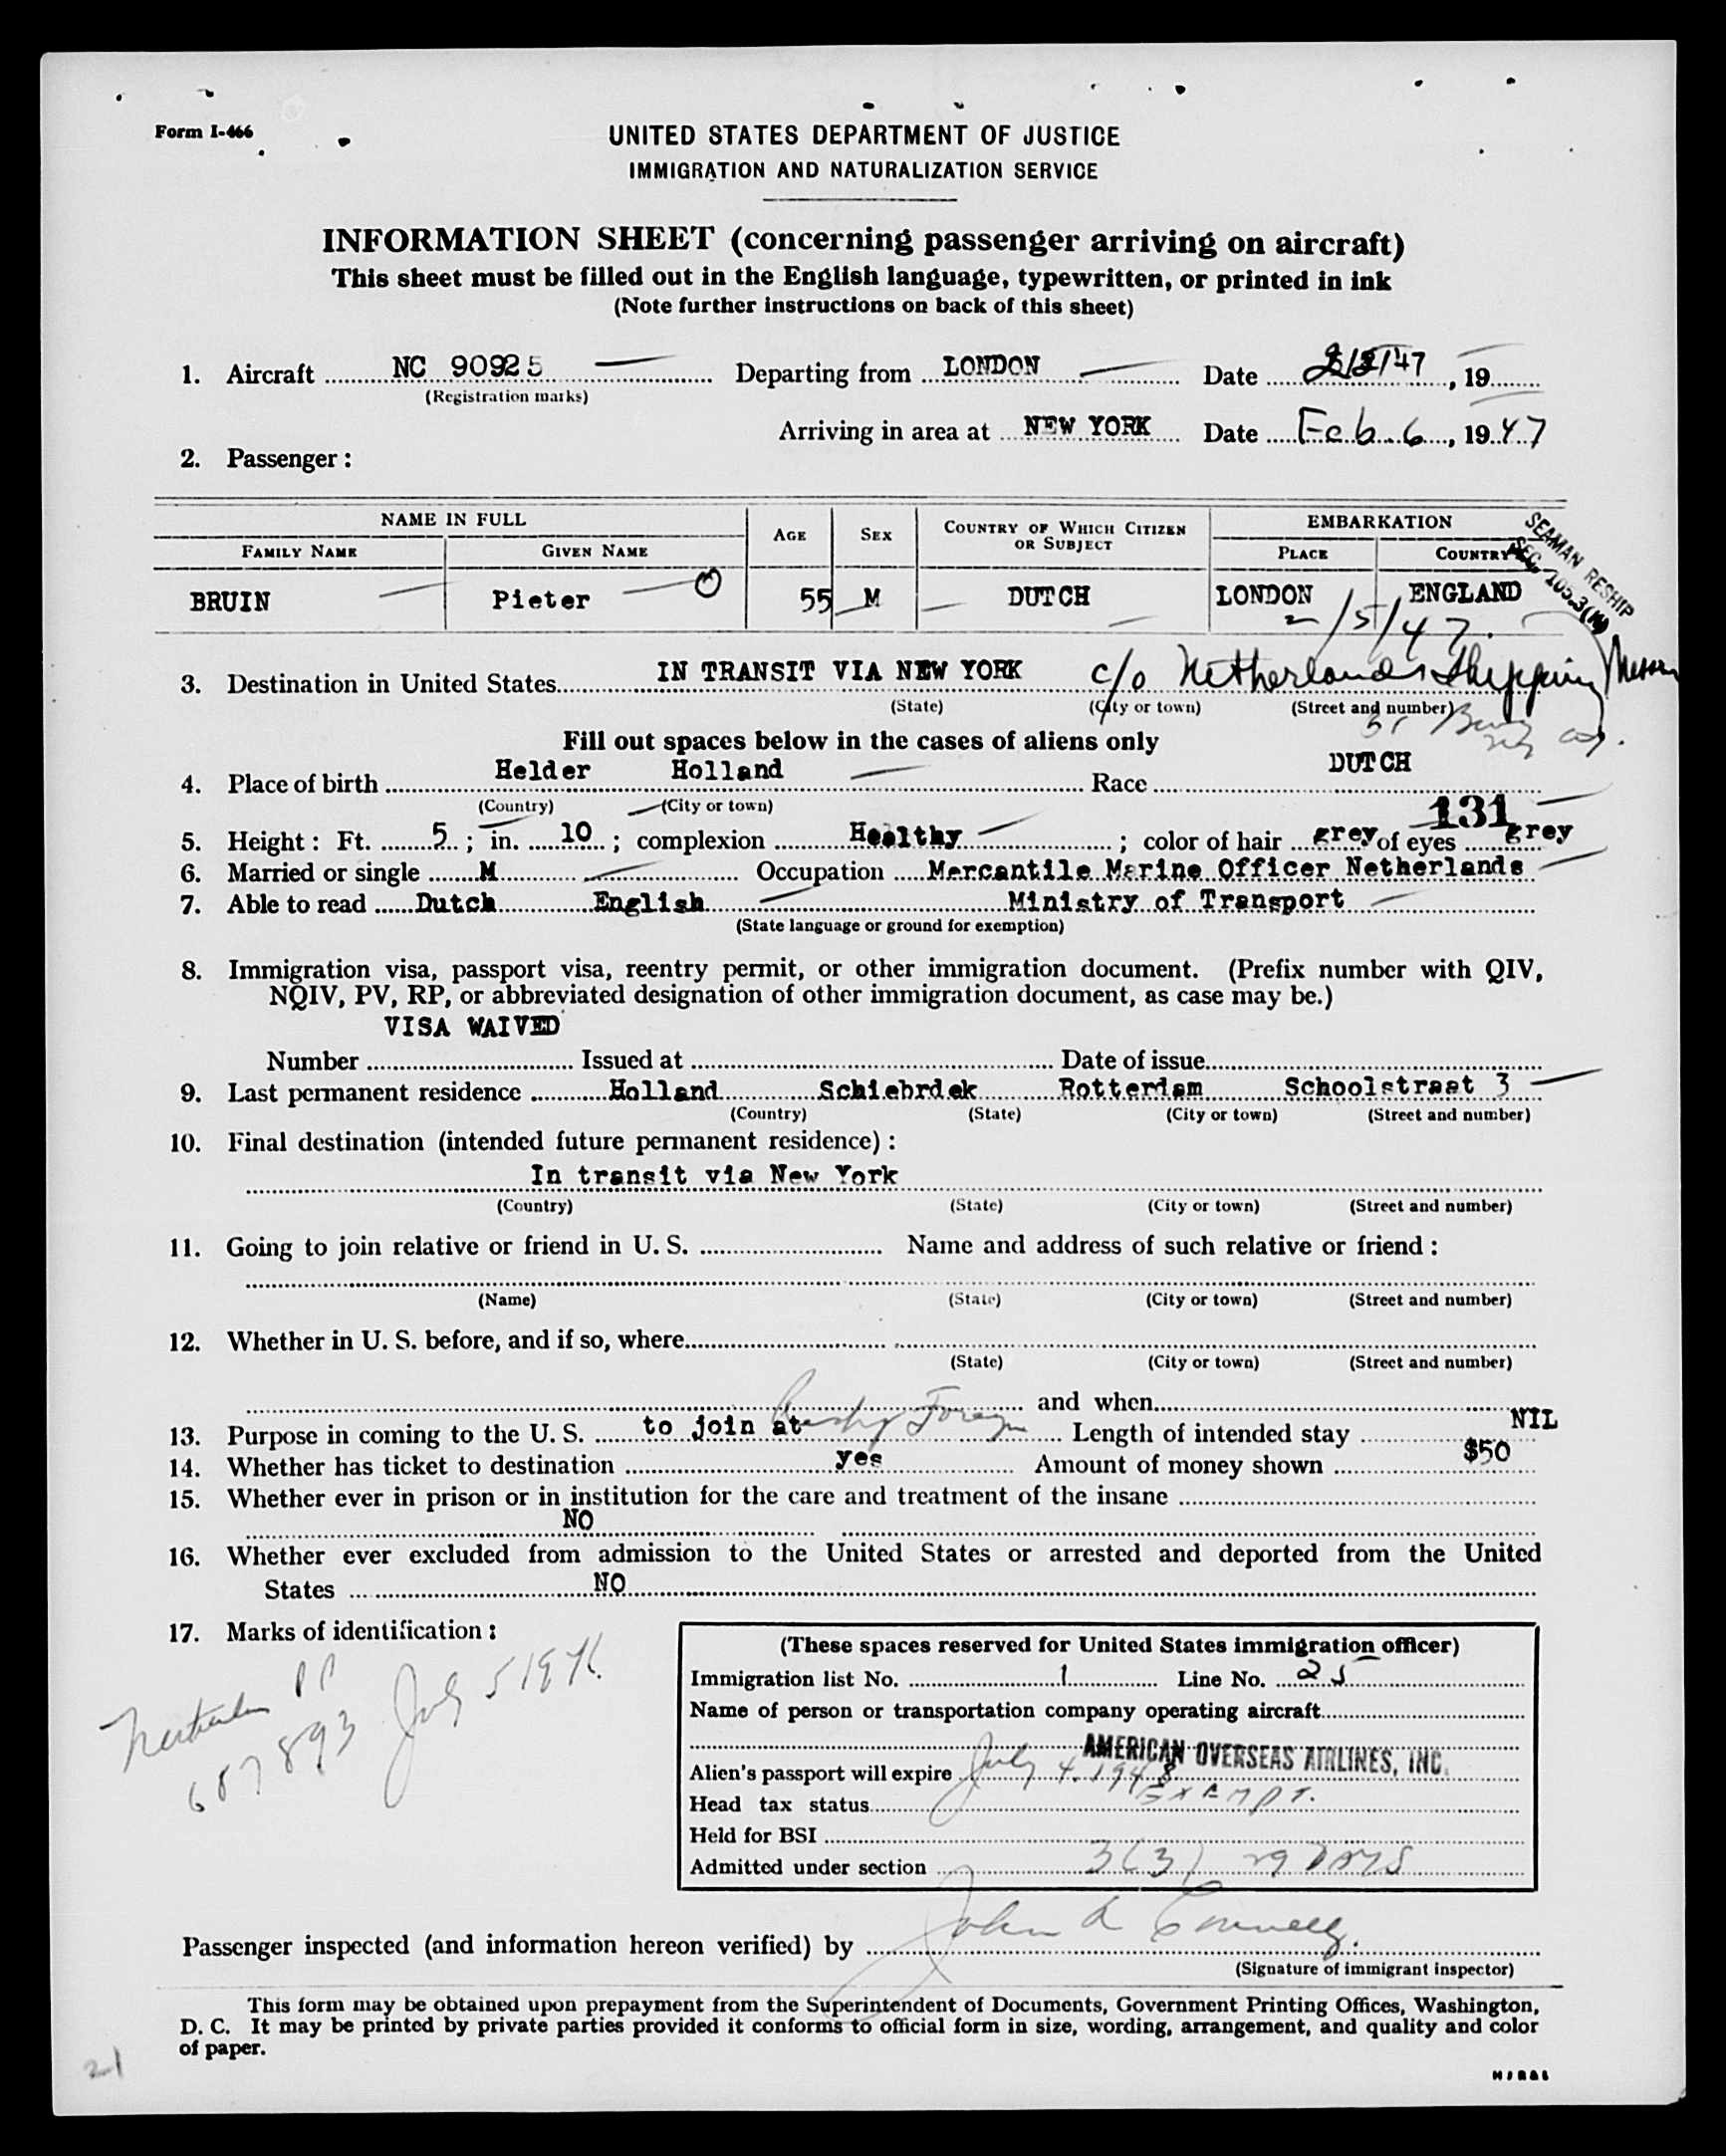 Form I-466
UNITED STATES DEPARTMENT OF JUSTICE
IMMIGRATION AND NATURALIZATION SERVICE
INFORMATION SHEET (concerning passenger arriving on aircraft)
This sheet must be filled out in the English language, typewritten, or printed in ink
(Note further instructions on back of this sheet)
1. Aircraft NC 90925 Departing from LONDON Date 2/5/47, 19
(Registration marks)
Arriving in area at NEW YORK Date Feb. 6, 1947
2. Passenger:
NAME IN FULL AGE SEX COUNTRY OF WHICH CITIZEN OR SUBJECT EMBARKATION
FAMILY NAME GIVEN NAME PLACE COUNTRY
SEAMAN RESHIP
SEC. 105.3(N)
BRUIN Pieter 55 M DUTCH LONDON ENGLAND
2/5/47.
3. Destination in United States IN TRANSIT VIA NEW YORK c/o Netherlands Shipping
(State) (City or town) (Street and number)
Fill out spaces below in the cases of aliens only
4. Place of birth Helder Holland Race DUTCH
(Country) (City or town)
131
5. Height: Ft. 5; in. 10; complexion Healthy; color of hair grey of eyes grey
6. Married or single M Occupation Mercantile Marine Officer Netherlands
7. Able to read Dutch English Ministry of Transport
(State language or ground for exemption)
8. Immigration visa, passport visa, reentry permit, or other immigration document. (Prefix number with QIV,
NQIV, PV, RP, or abbreviated designation of other immigration document, as case may be.)
VISA WAIVED
Number Issued at Date of issue
9. Last permanent residence Holland Schiebrdek Rotterdam Schoolstraat 3
(Country) (State) (City or town) (Street and number)
10. Final destination (intended future permanent residence):
In transit via New York
(Country) (State) (City or town) (Street and number)
11. Going to join relative or friend in U. S. Name and address of such relative or friend:
(Name) (State) (City or town) (Street and number)
12. Whether in U. S. before, and if so, where
(State) (City or town) (Street and number)
and when
13. Purpose in coming to the U. S. to join at Foreign Length of intended stay NIL
14. Whether has ticket to destination yes Amount of money shown $50
15. Whether ever in prison or in institution for the care and treatment of the insane
NO
16. Whether ever excluded from admission to the United States or arrested and deported from the United
States NO
17. Marks of identification:
PP
687893 July 5 1946
(These spaces reserved for United States immigration officer)
Immigration list No. 1 Line No. 25
Name of person or transportation company operating aircraft
AMERICAN OVERSEAS AIRLINES, INC.
Alien's passport will expire July 4. 1948
Head tax status EXEMPT.
Held for BSI
Admitted under section 3(3) 29 DAYS
Passenger inspected (and information hereon verified) by John L Connelly.
(Signature of immigrant inspector)
This form may be obtained upon prepayment from the Superintendent of Documents, Government Printing Offices, Washington,
D. C. It may be printed by private parties provided it conforms to official form in size, wording, arrangement, and quality and color
of paper.
21